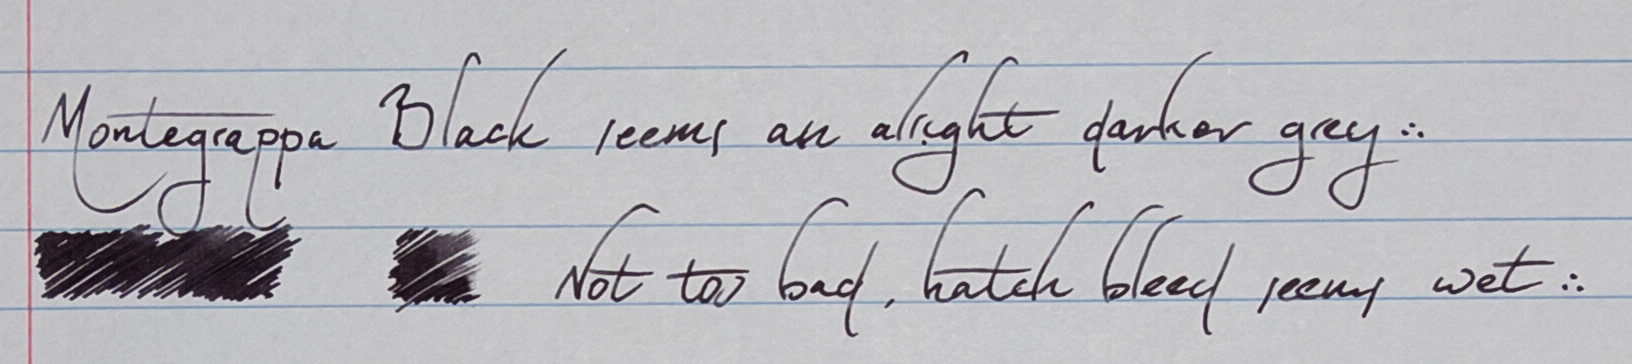 Montegrappa Black seems an alright darker grey ∴
Not too bad, hatch bleed seems wet ∴